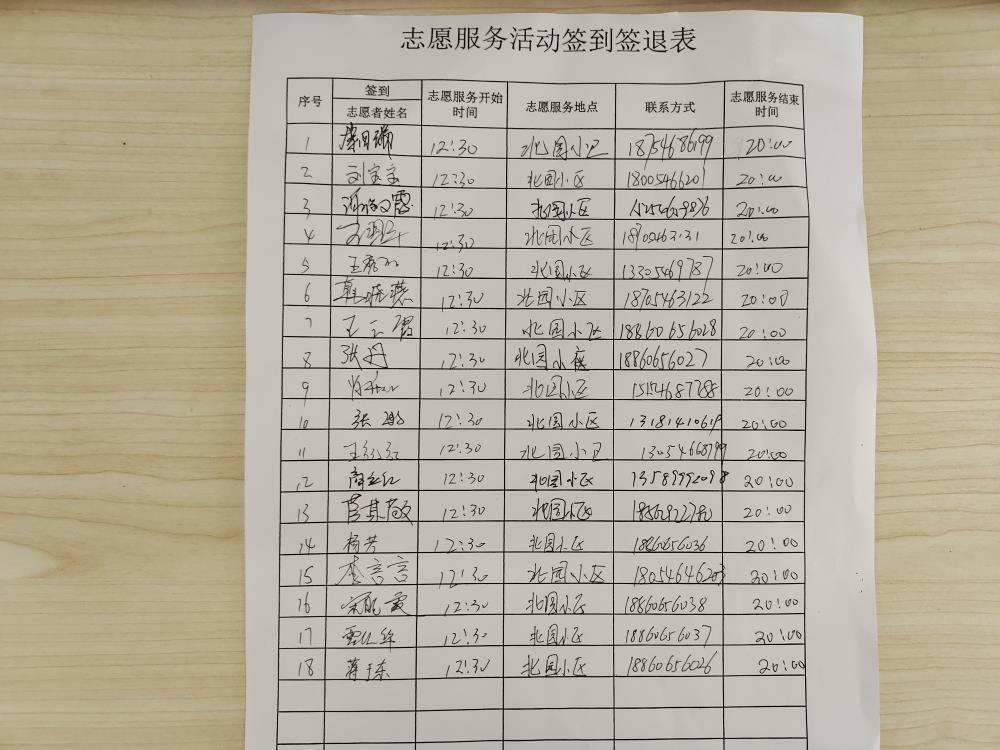 志愿服务活动签到签退表
序号 签到 志愿者姓名 志愿服务开始时间 志愿服务地点 联系方式 志愿服务结束时间
1 12:30 北园小区 18754686199 20:00
2 刘宝宝 12:30 北园小区 18005466201 20:00
3 12:30 北园小区 20:00
4 12:30 北园小区 20:00
5 12:30 北园小区 13305469787 20:00
6 韩晓燕 12:30 北园小区 18705463122 20:00
7 王云霞 12:30 北园小区 18860656028 20:00
8 张丹 12:30 北园小区 18860656027 20:00
9 12:30 北园小区 20:00
10 张 12:30 北园小区 13181410619 20:00
11 王红红 12:30 北园小区 13054668799 20:00
12 12:30 北园小区 13589992098 20:00
13 12:30 北园小区 20:00
14 杨芳 12:30 北园小区 18860656036 20:00
15 李言言 12:30 北园小区 18054646203 20:00
16 12:30 北园小区 18860656038 20:00
17 12:30 北园小区 18860656037 20:00
18 蒋于东 12:30 北园小区 18860656026 20:00